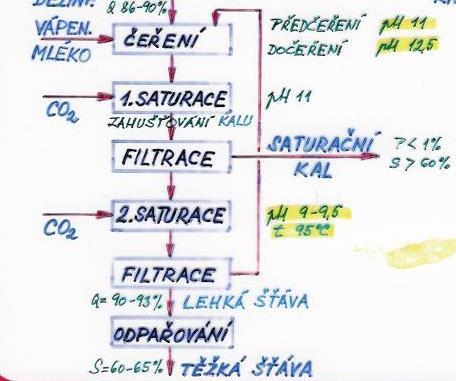 Q 86-90%
VÁPEN.
MLÉKO
ČEŘENÍ
PŘEDČEŘENÍ pH 11
DOČEŘENÍ pH 12,5
CO2
1. SATURACE
pH 11
ZAHUŠŤOVÁNÍ KALU
FILTRACE
SATURAČNÍ
KAL
P<1%
S>60%
CO2
2. SATURACE
pH 9-9,5
t 95°C
FILTRACE
Q= 90-93%
LEHKÁ ŠŤÁVA
ODPAŘOVÁNÍ
S=60-65%
TĚŽKÁ ŠŤÁVA